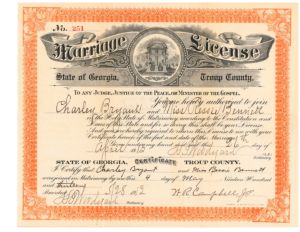 No. 251
Marriage License
State of Georgia, Troup County.
To any Judge, Justice of the Peace, or Minister of the Gospel.
You are hereby authorized to join
Charley Bryant and Miss
in the Holy State of Matrimony, according to the Constitution and
Laws of this State, and for so doing this shall be your
And you are hereby required to return this License to me with your
Certificate hereof of the fact and date of the Marriage.
Given under my hand and seal this 26 day of
April
STATE OF GEORGIA. Certificate TROUP COUNTY.
I Certify that Charley Bryant and Miss
were joined in Matrimony by me this 4 day of May Nineteen Hundred
and
Recorded 5/28